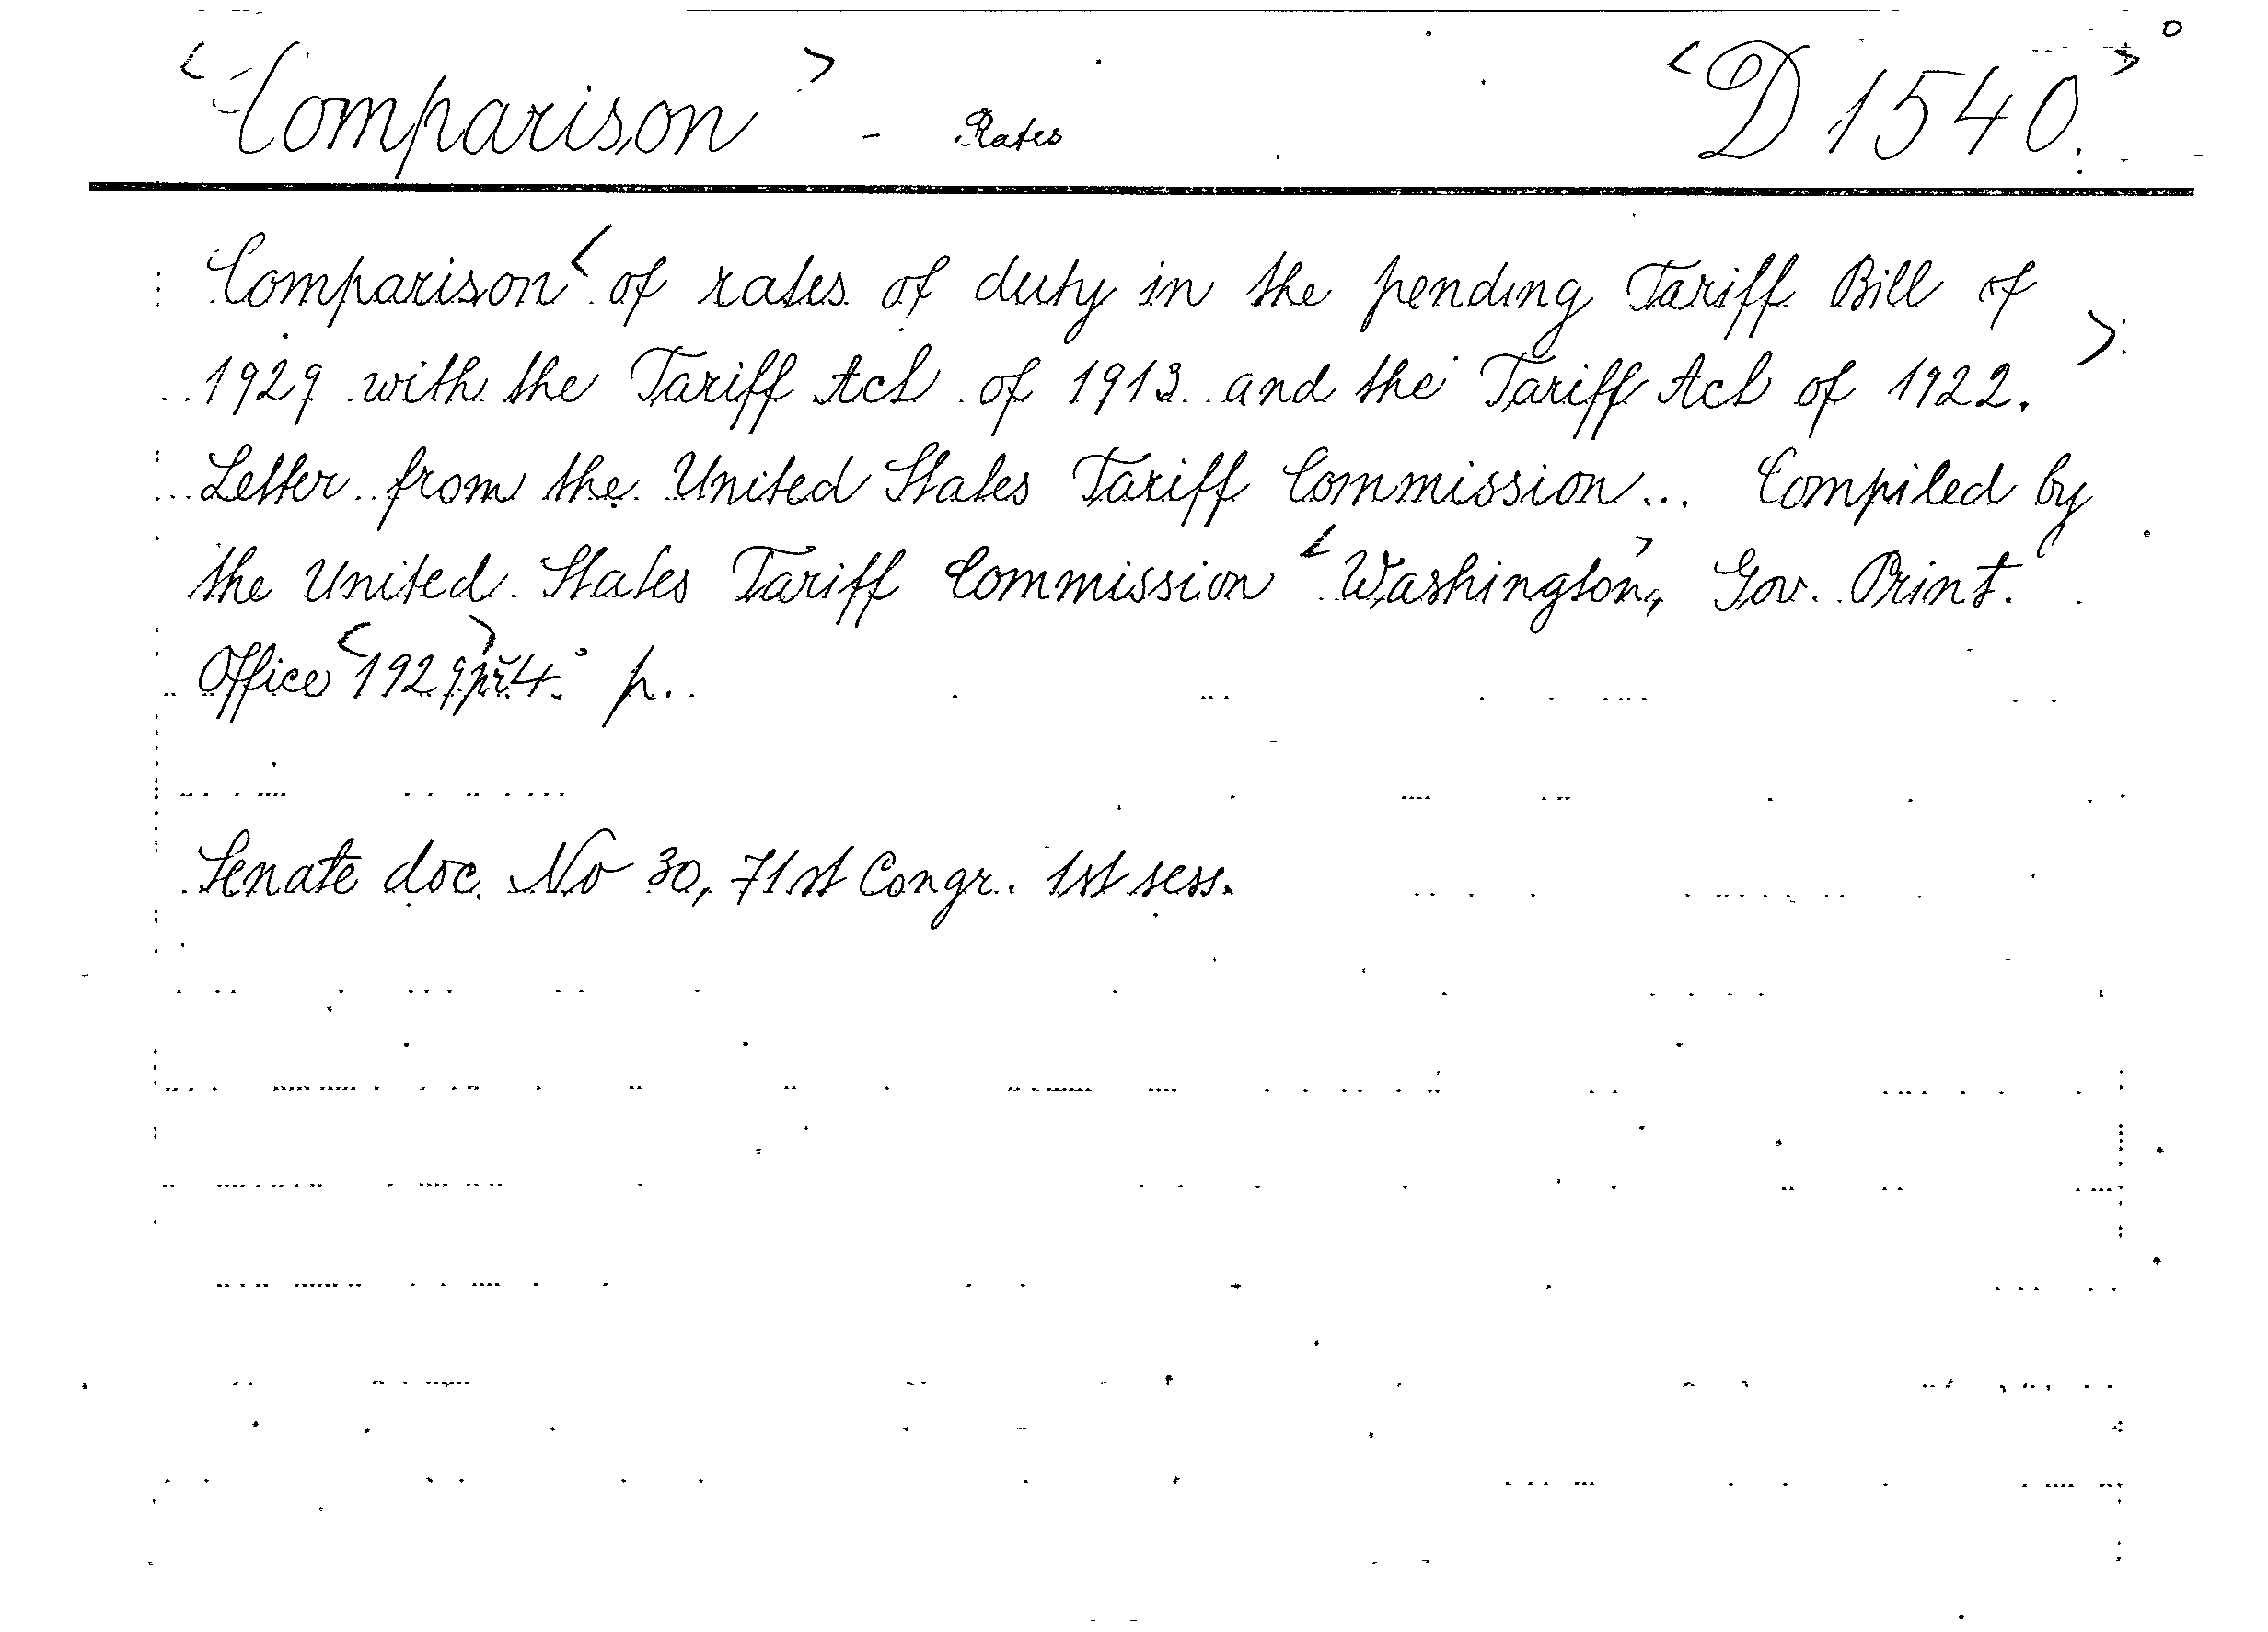 <Comparison> - Rates <D 1540.>
Comparison< of rates of duty in the pending Tariff Bill of
1929 with the Tariff Act of 1913 and the Tariff Act of 1922.>
Letter from the United States Tariff Commission... Compiled by
the United States Tariff Commission <Washington>, Gov. Print.
Office <1929> př. 4° p.
Senate doc. No 30, 71st Congr. 1st sess.